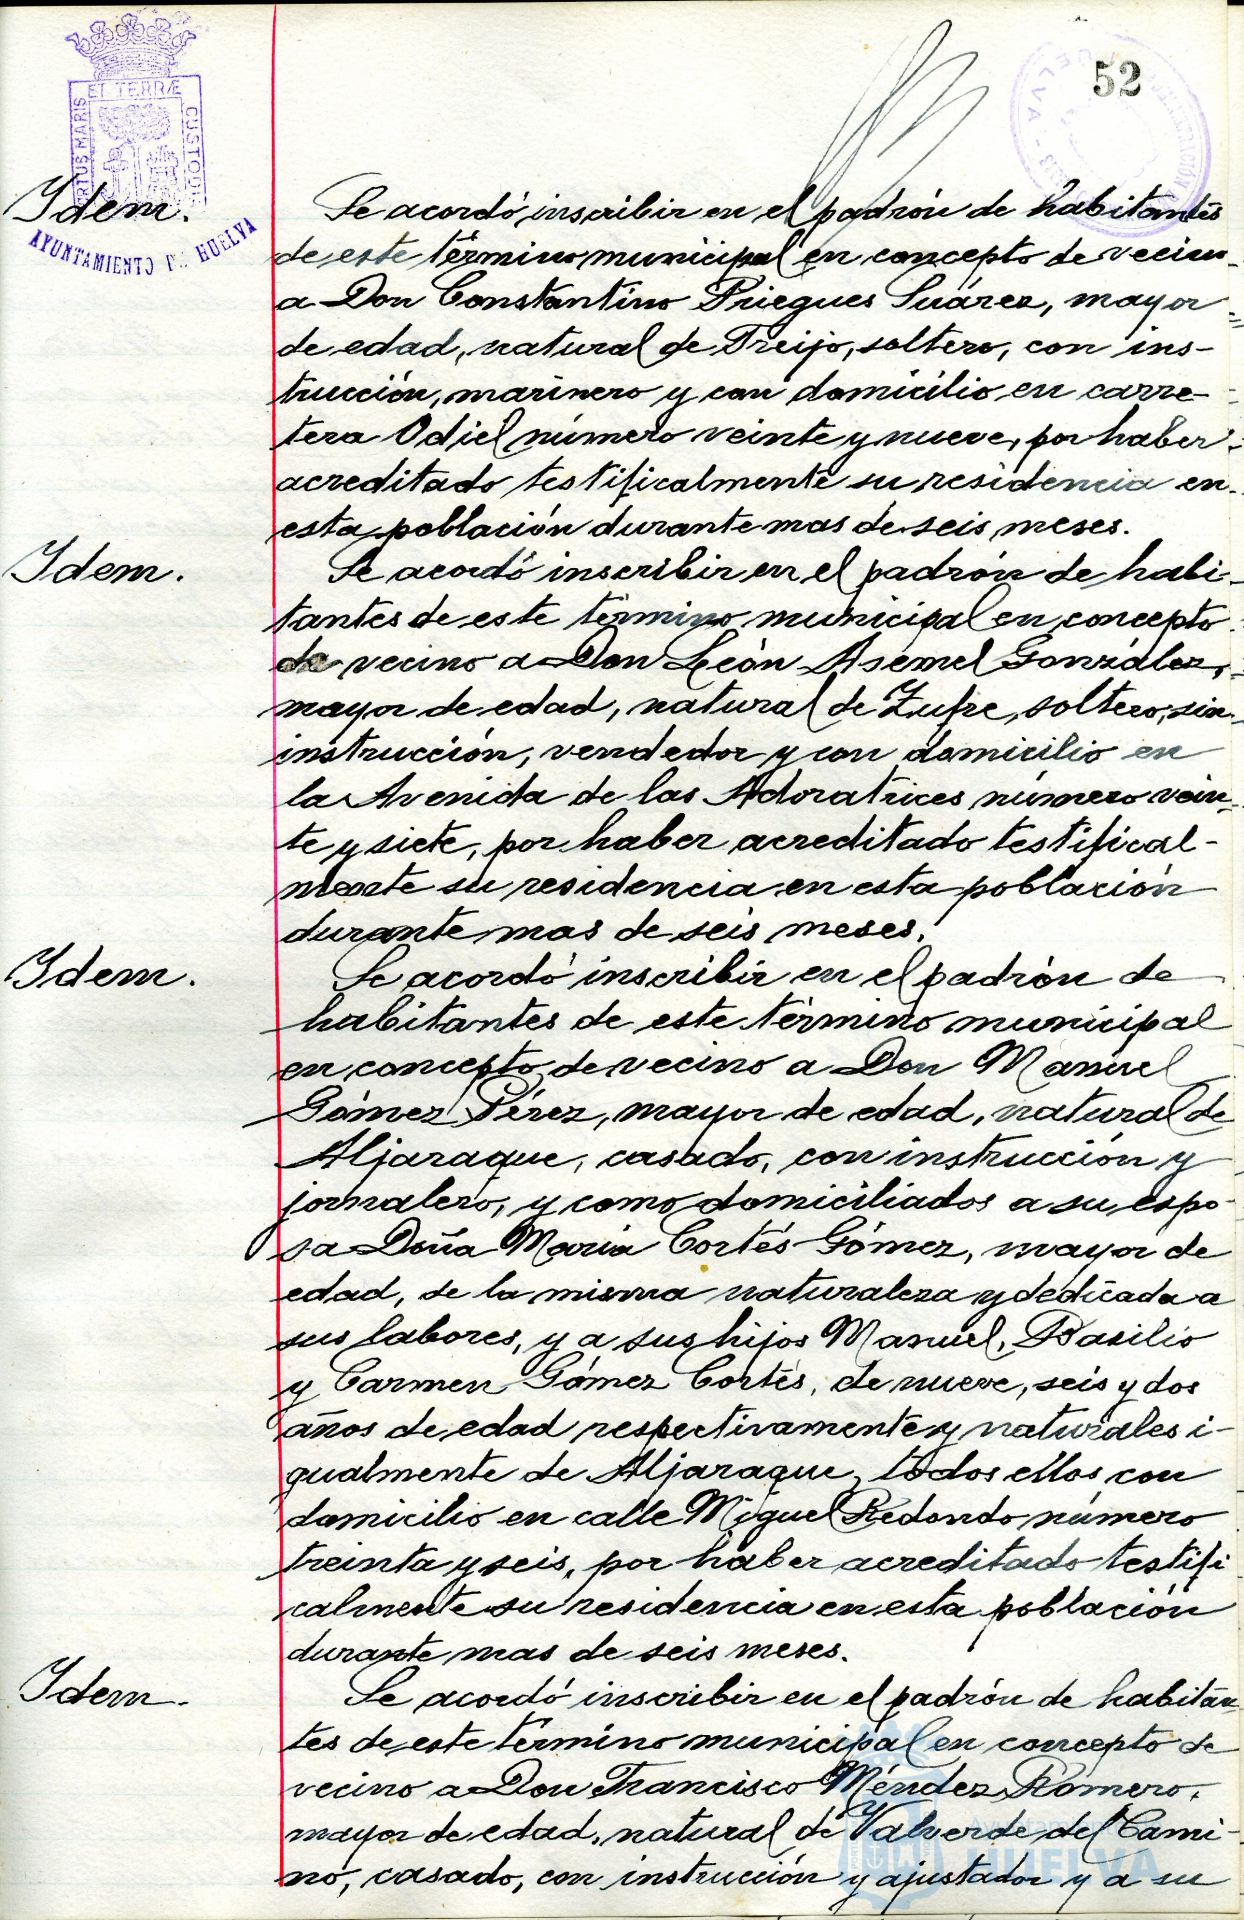 52
ET TERRÆ
PORTUS MARIS
CUSTODIA
AYUNTAMIENTO DE HUELVA
Idem.
Se acordó inscribir en el padrón de habitantes
de este término municipal en concepto de vecino
a Don Constantino Priegues Suárez, mayor
de edad, natural de Treijo, soltero, con ins-
trucción, marinero y con domicilio en carre-
tera Odiel número veinte y nueve, por haber
acreditado testificalmente su residencia en
esta población durante mas de seis meses.
Idem.
Se acordó inscribir en el padrón de habi-
tantes de este término municipal en concepto
de vecino a Don León Asemel González,
mayor de edad, natural de Zufre, soltero, sin
instrucción, vendedor y con domicilio en
la Avenida de las Adoratrices número vein-
te y siete, por haber acreditado testifical-
mente su residencia en esta población
durante mas de seis meses.
Idem.
Se acordó inscribir en el padrón de
habitantes de este término municipal
en concepto de vecino a Don Manuel
Gómez Pérez, mayor de edad, natural de
Aljaraque, casado, con instrucción y
jornalero, y como domiciliados a su espo-
sa Doña María Cortés Gómez, mayor de
edad, de la misma naturaleza y dedicada a
sus labores, y a sus hijos Manuel, Basilio
y Carmen Gómez Cortés, de nueve, seis y dos
años de edad respectivamente y naturales i-
gualmente de Aljaraque, todos ellos con
domicilio en calle Miguel Redondo número
treinta y seis, por haber acreditado testifi
calmente su residencia en esta población
durante mas de seis meses.
Idem.
Se acordó inscribir en el padrón de habitan
tes de este término municipal en concepto de
vecino a Don Francisco Méndez Romero,
mayor de edad, natural de Valverde del Cami-
no, casado, con instrucción y ajustador y a su
HUELVA